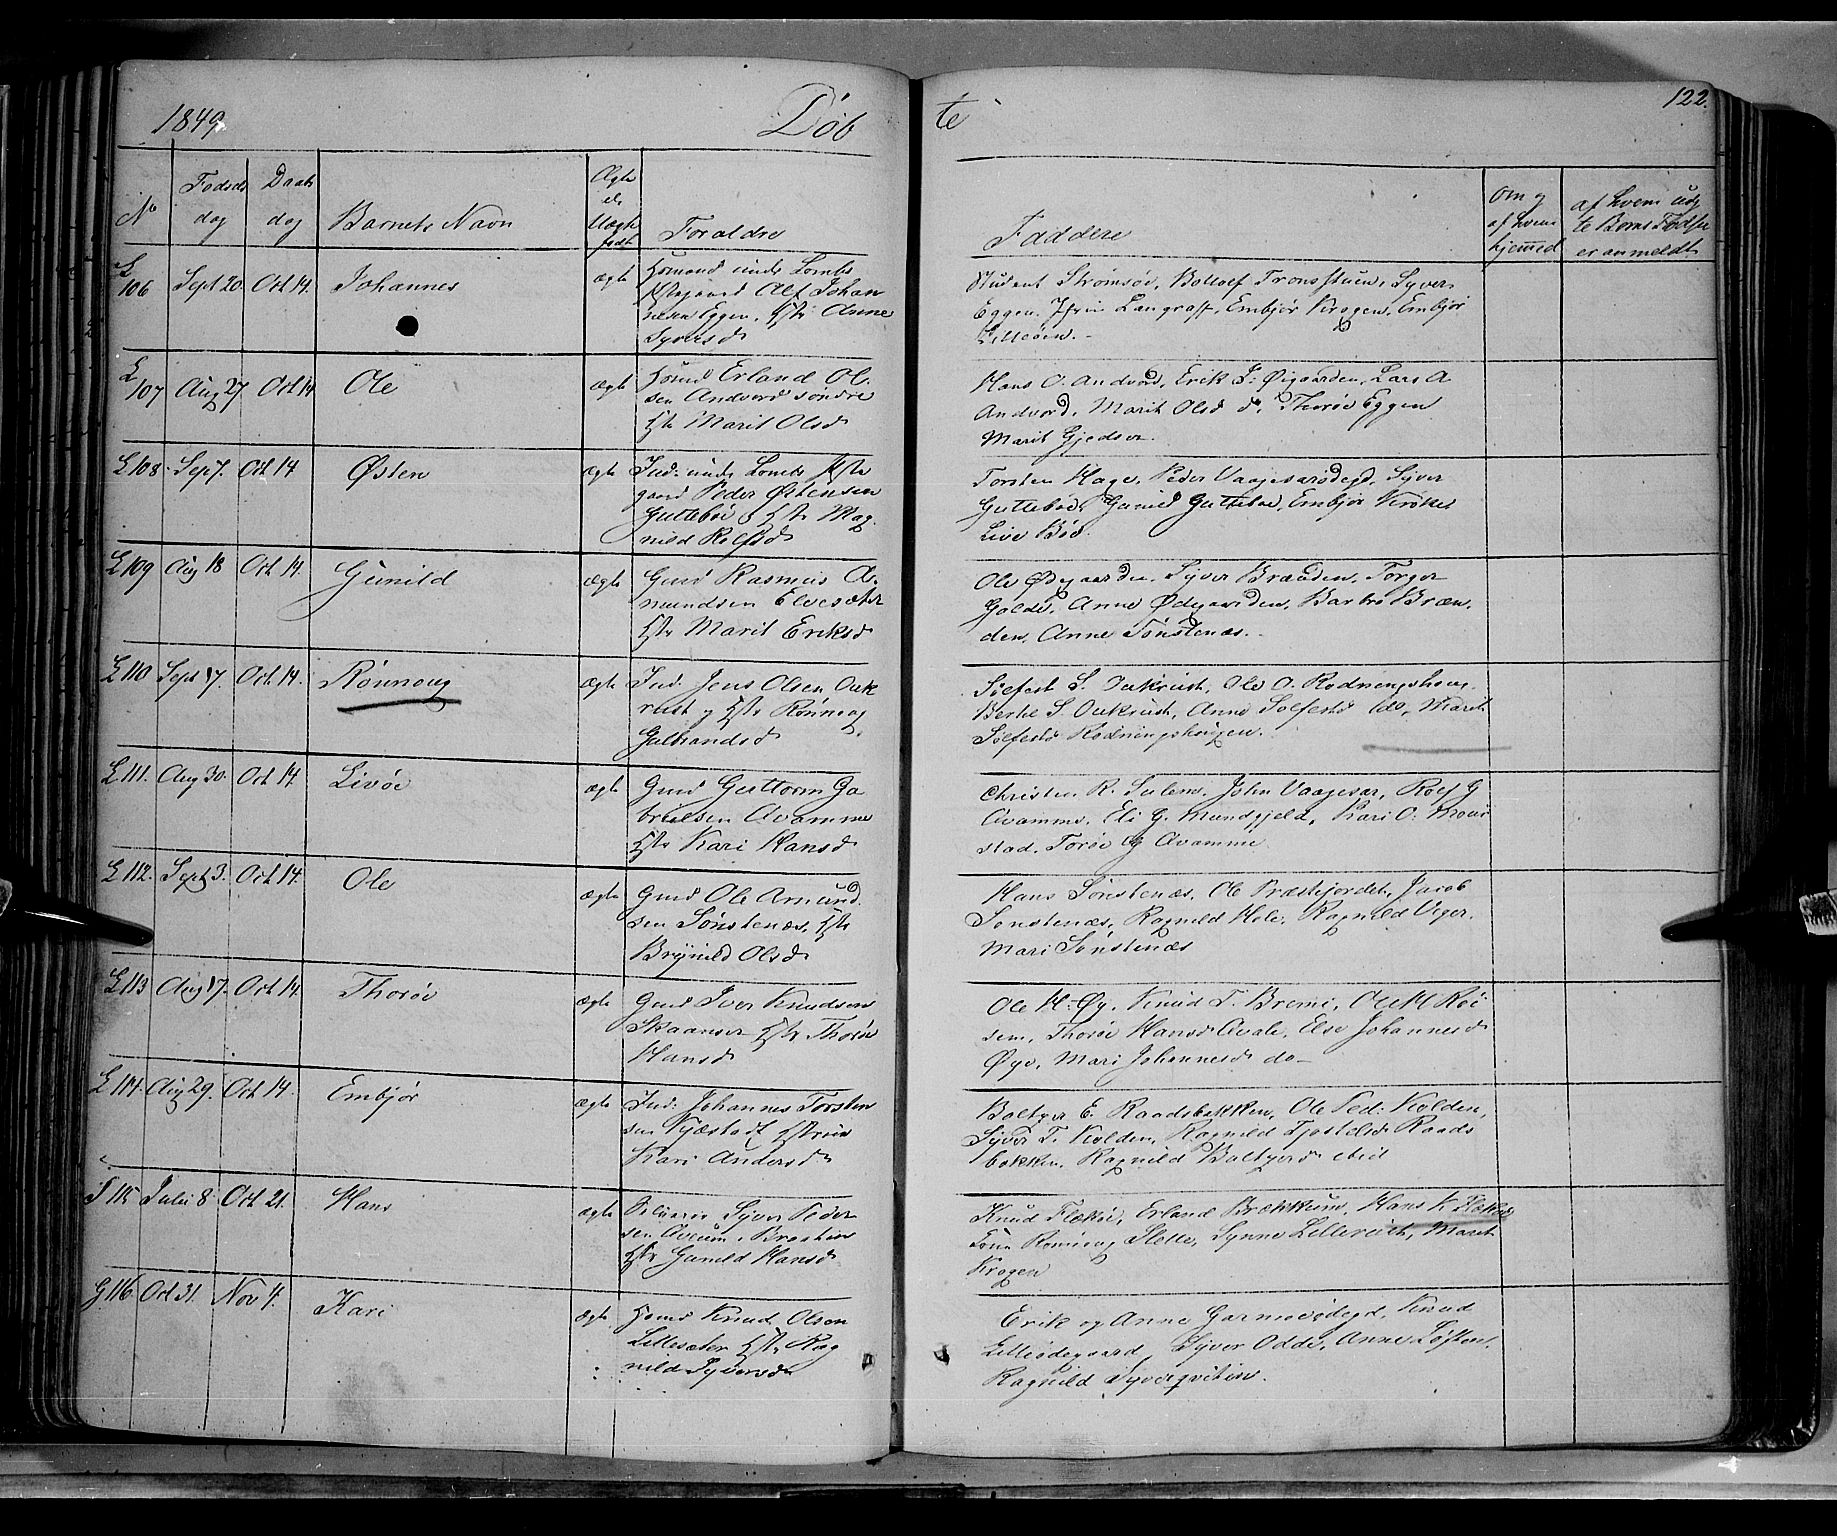 1849
Døb
te
122.
No
Fødsels
dag
Daabs
dag
Barnets Navn
Ægte
el.
Uægte
født
Forældre
Faddere
Om og
af hvem
hjemmed.
af hvem uæg
te Børns Fødsel
er anmeldt
L 106
Sept 20
Oct 14.
Johannes
ægte
Huusmand under Lombs
Præstegaard Alf Johan
nesen Eggen, Hstr Anne
Syversd
Student Strømsøe, Botolf Tronsstuen, Syver
Eggen, Langraff, Embjør Krogen, Embjør
Lilleøien.
L 107
Aug 27
Oct 14
Ole
ægte
Huusmd Erland Ol-
sen Andvord søndre
Hstr Marit Olsd
Hans O. Andvord, Erik I. Øigaarden, Lars A
Andvord, Marit Olsd d., Thorøe Eggen
Marit Gjedsen.
L 108
Sep 7.
Oct 14
Østen
ægte
Ind: under Lombs Præste
gaard Peder Østensen
Guttebøe, Hstr Mag-
nild Rolfsd
Torsten Hage, Peder Vaagesarødegd, Syver
Guttebøe, Gunild Guttebøe, Embjør
Live Bøe
L 109
Aug 18
Oct 14.
Gunild
ægte
Gmd Rasmus A-
mundsen Elvesæter
Hstr Marit Eriksd
Ole Ødegaarden, Syver Brænden, Torger
Galde, Anne Ødegaarden, Barbro Bræn-
den, Anne Sønstenæs.
L 110
Sept 17.
Oct. 14.
Rønnoug
ægte
Ind. Jens Olsen Ouk
rust og Hstr Rønnoug
Gulbrandsd
Solfest S. Oukrust, Ole O. Rødningshoug,
Bertel S. Oukrust, Anne Solfestd do, Marit
Solfestd Rødningshougen.
L 111.
Aug 30.
Oct 14.
Livøe
ægte
Gmd Guttorm Ga
brielsen Avamme
Hstr Kari Hansd
Christen R. Sulem, John Vaagesar, Rolf G
Avamme, Eli G. Mundgjeld, Kari O.
stad, Torøe G Avamme.
L 112.
Sept 3.
Oct 14.
Ole
ægte
Gmd Ole Amund
sen Sønstenæs, Hstr
Brynild Olsd
Hans Sønstenæs, Ole Præstejordet, Jacob
Sønstenæs, Ragnild Hole, Ragnild
Mari Sønstenæs
L 113
Aug 17.
Oct 14.
Thorøe
ægte
Gmd Iver Knudsen
Skaanser Hstr Thorøe
Hansd
Ole H. Øy, Knud T. Bremi, Ole H Røi
sem, Thorøe Hansd Avale, Else Johannesd
Øye, Mari Johannesd do—
L 114.
Aug 29.
Oct 14.
Embjør
ægte
Ind: Johannes Torsten
sen Kjæstadt Hstrue
Kari Andersd
Baltzer E. Raadsbakken, Ole Ped: Kolden,
Syver T. Kolden, Ragnild Tjostelsd Raads
bakken, Ragnild Baltzersd ibid
S 115
Julii 8
Oct 21.
Hans
ægte
Syver Peder
sen
Hstr Gunild Hansd
Knud Flækøi, Erland Brækkum, Hans K. Flækøi
Slette, Synne Lillerusth, Marit
Krogen
G 116
Oct 31.
Nov 4.
Kari
ægte
Huusmd Knud Olsen
Lillesæter Hstr Rag
nild Syversd
Erik og Anne Garmoødegd, Knud
Lilleødegaard, Syver Odde, Anne Løften,
Ragnild